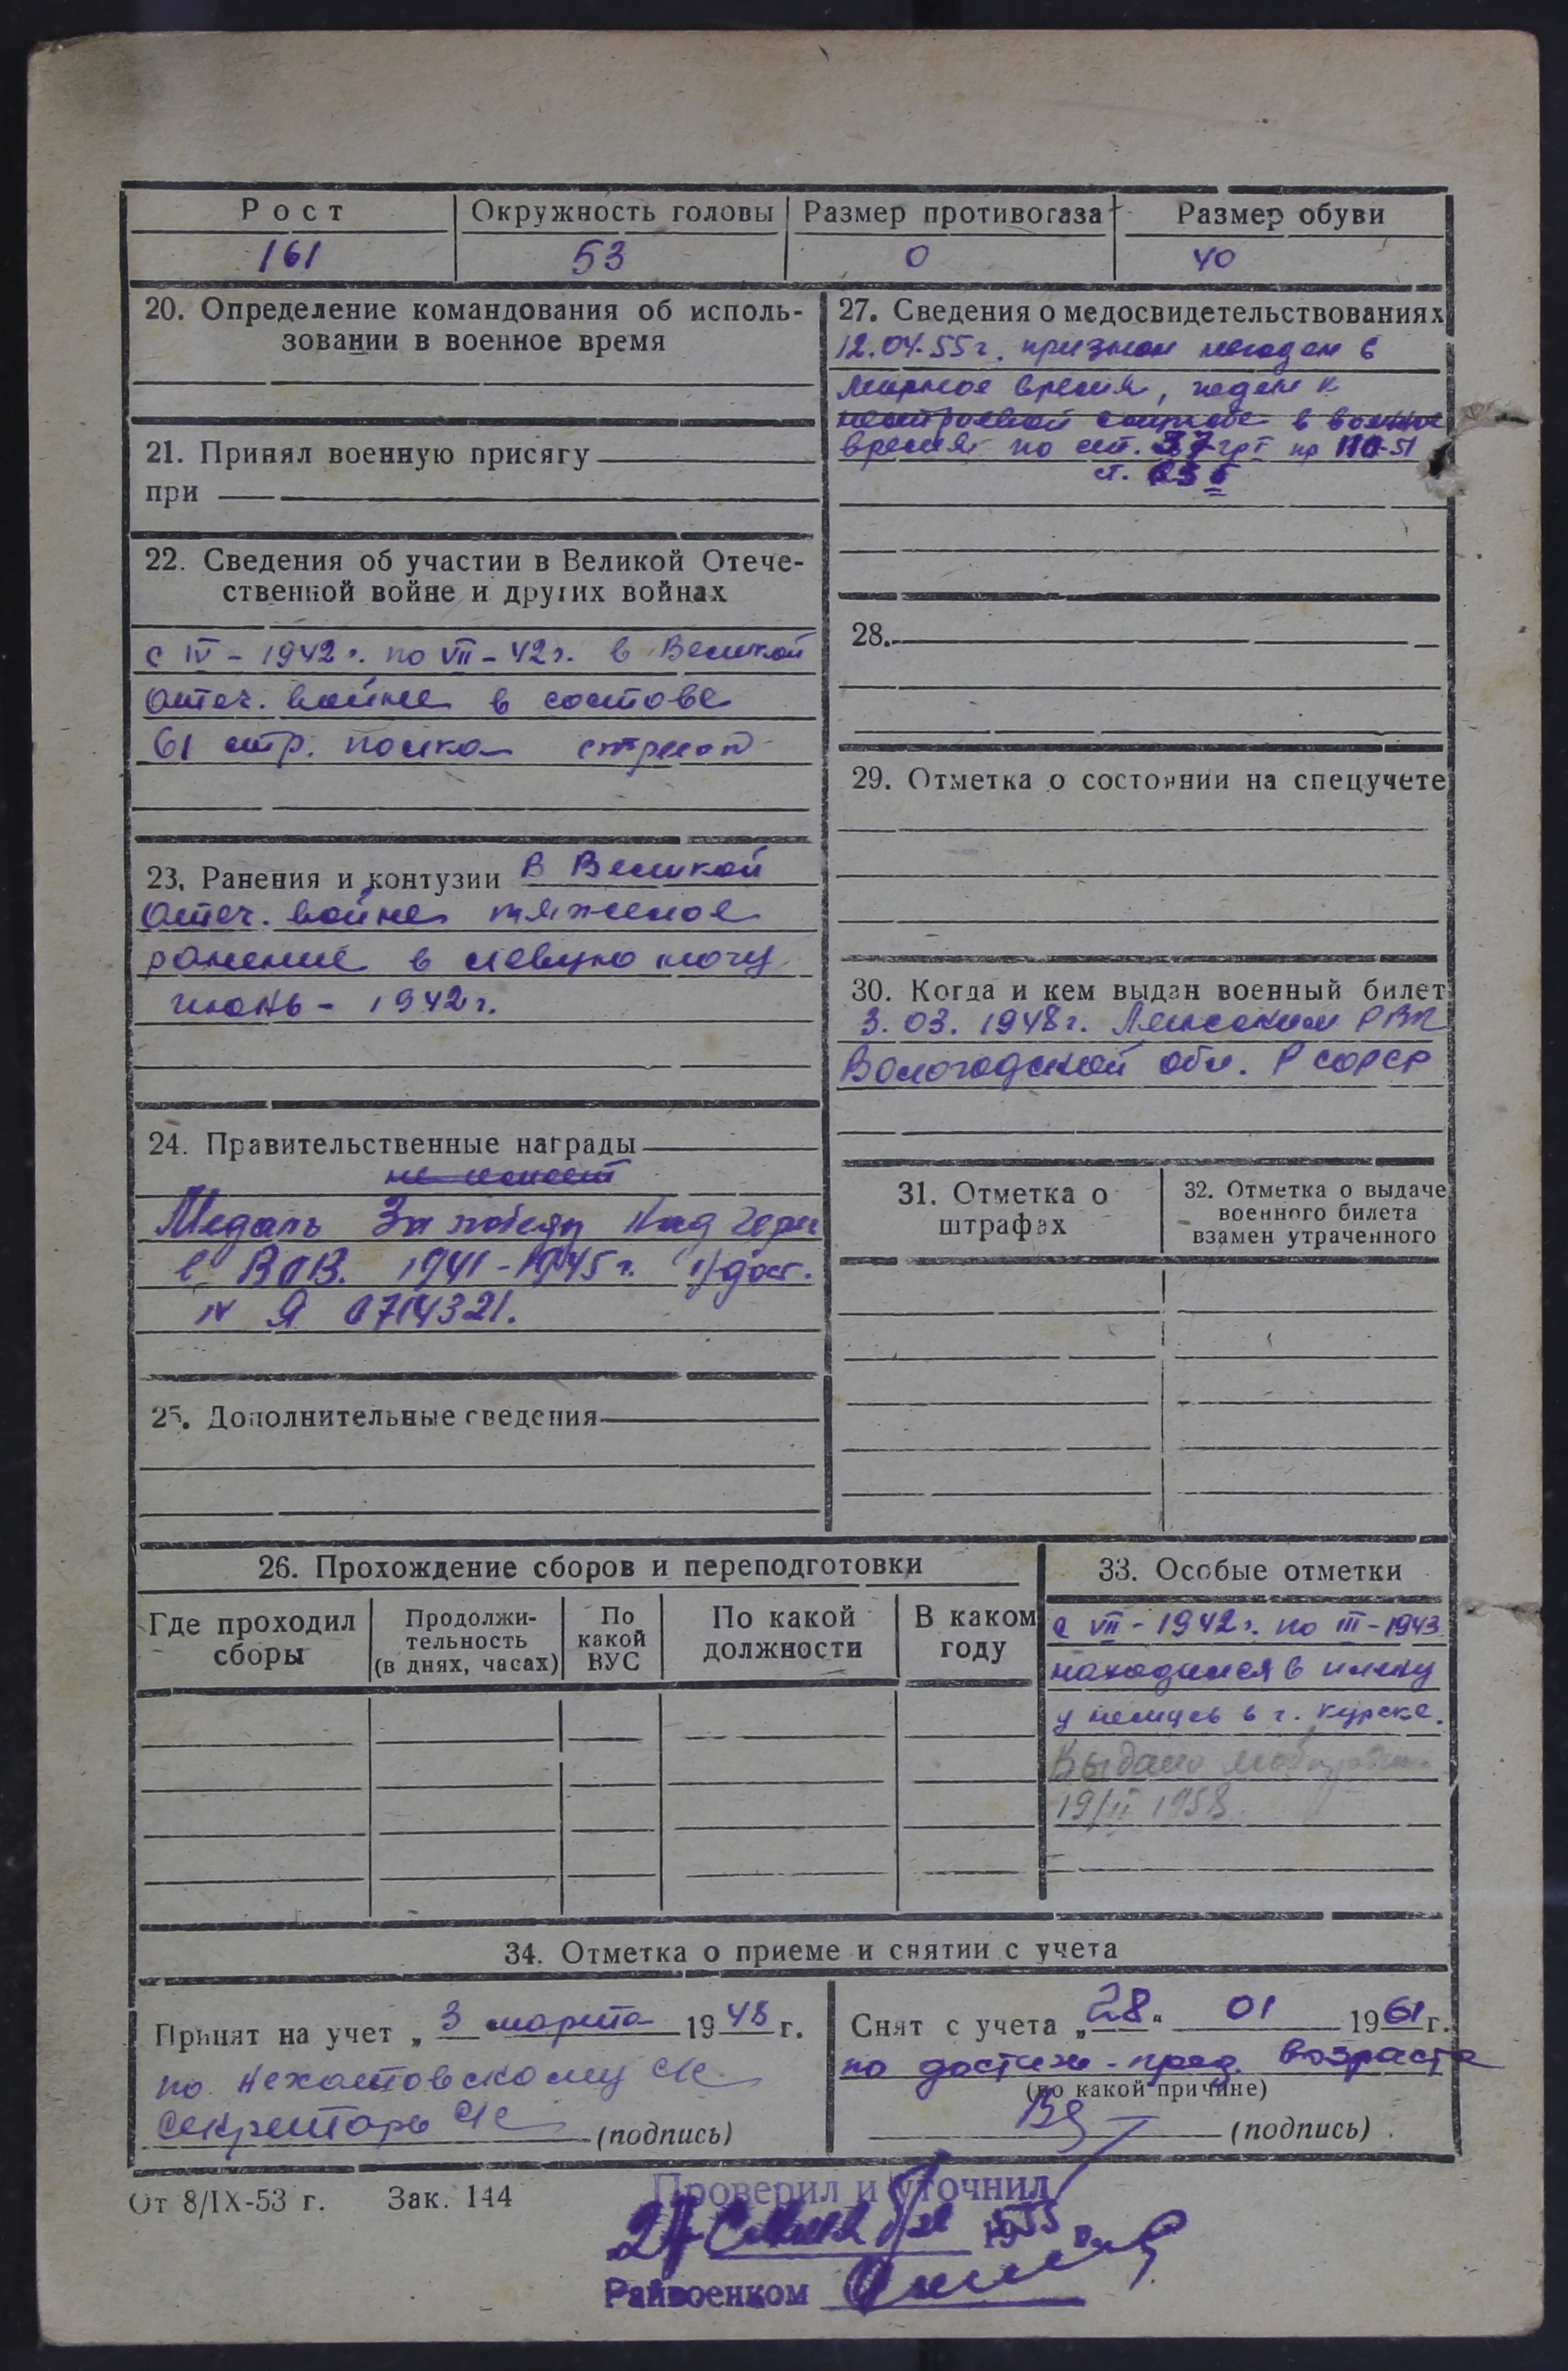 Рост
Окружность головы
Размер противогаза
Размер обуви
161
53
0
40
20. Определение командования об исполь-
зовании в военное время
21. Принял военную присягу
при
22. Сведения об участии в Великой Отече-
ственной войне и других войнах
с IV - 1942 г. по VII - 42 г. в Великой
Отеч. войне в составе
61 стр. полка стрелок
23. Ранения и контузии В Великой
Отеч. войне тяжелое
ранение в левую ногу
июнь - 1942 г.
24. Правительственные награды
не имеет
Медаль За победу над Герм
в ВОВ. 1941-1945 г. Удост.
№ Я 0714321.
25. Дополнительные сведения
27. Сведения о медосвидетельствованиях
12.04.55 г. признан негоден в
мирное время, годен к
нестроевой службе в военное
время по ст. 37 гр I пр 110-51
ст. 65
28.
29. Отметка о состоянии на спецучете
30. Когда и кем выдан военный билет
3. 03. 1948 г. РВК
Вологодской обл. РСФСР
31. Отметка о
штрафах
32. Отметка о выдаче
военного билета
взамен утраченного
26. Прохождение сборов и переподготовки
Где проходил
сборы
Продолжи-
тельность
(в днях, часах)
По
какой
ВУС
По какой
должности
В каком
году
33. Особые отметки
с VII - 1942 г. по III - 1943
находился в плену
у немцев в г. Курске.
Выдано
19/II 1958
34. Отметка о приеме и снятии с учета
Принят на учет „ 3 марта 1948 г.
по с/с
Секретарь с/с (подпись)
Снят с учета „28“ 01 1961 г.
по достиж. пред. возраста
(по какой причине)
(подпись)
От 8/IX-53 г. Зак. 144
Проверил и уточнил
27 1955
Райвоенком